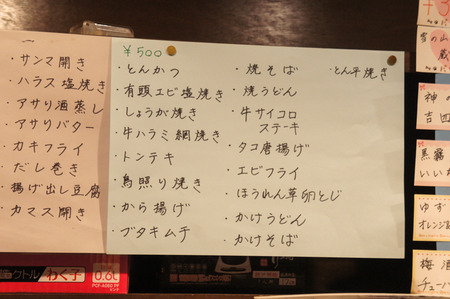 ・サンマ開き
・ハラス塩焼き
・アサリ酒蒸し
・アサリバター
・カキフライ
だし巻き
・揚げ出し豆腐
・カマス開き
¥500
・とんかつ
・有頭エビ塩焼き
・しょうが焼き
・牛ハラミ網焼き
・トンテキ
・鳥照り焼き
・から揚げ
・ブタキムチ
・焼そば
・焼うどん
・牛サイコロ
ステーキ
・タコ唐揚げ
・エビフライ
・ほうれん草卵とじ
・かけうどん
・かけそば
・とん平焼き
雪の山
蔵
神の
吉田
黒霧
いい
ゆず
オレンジ
梅酒
チューハ
ケトル わく子 0.6L
PCF-A060